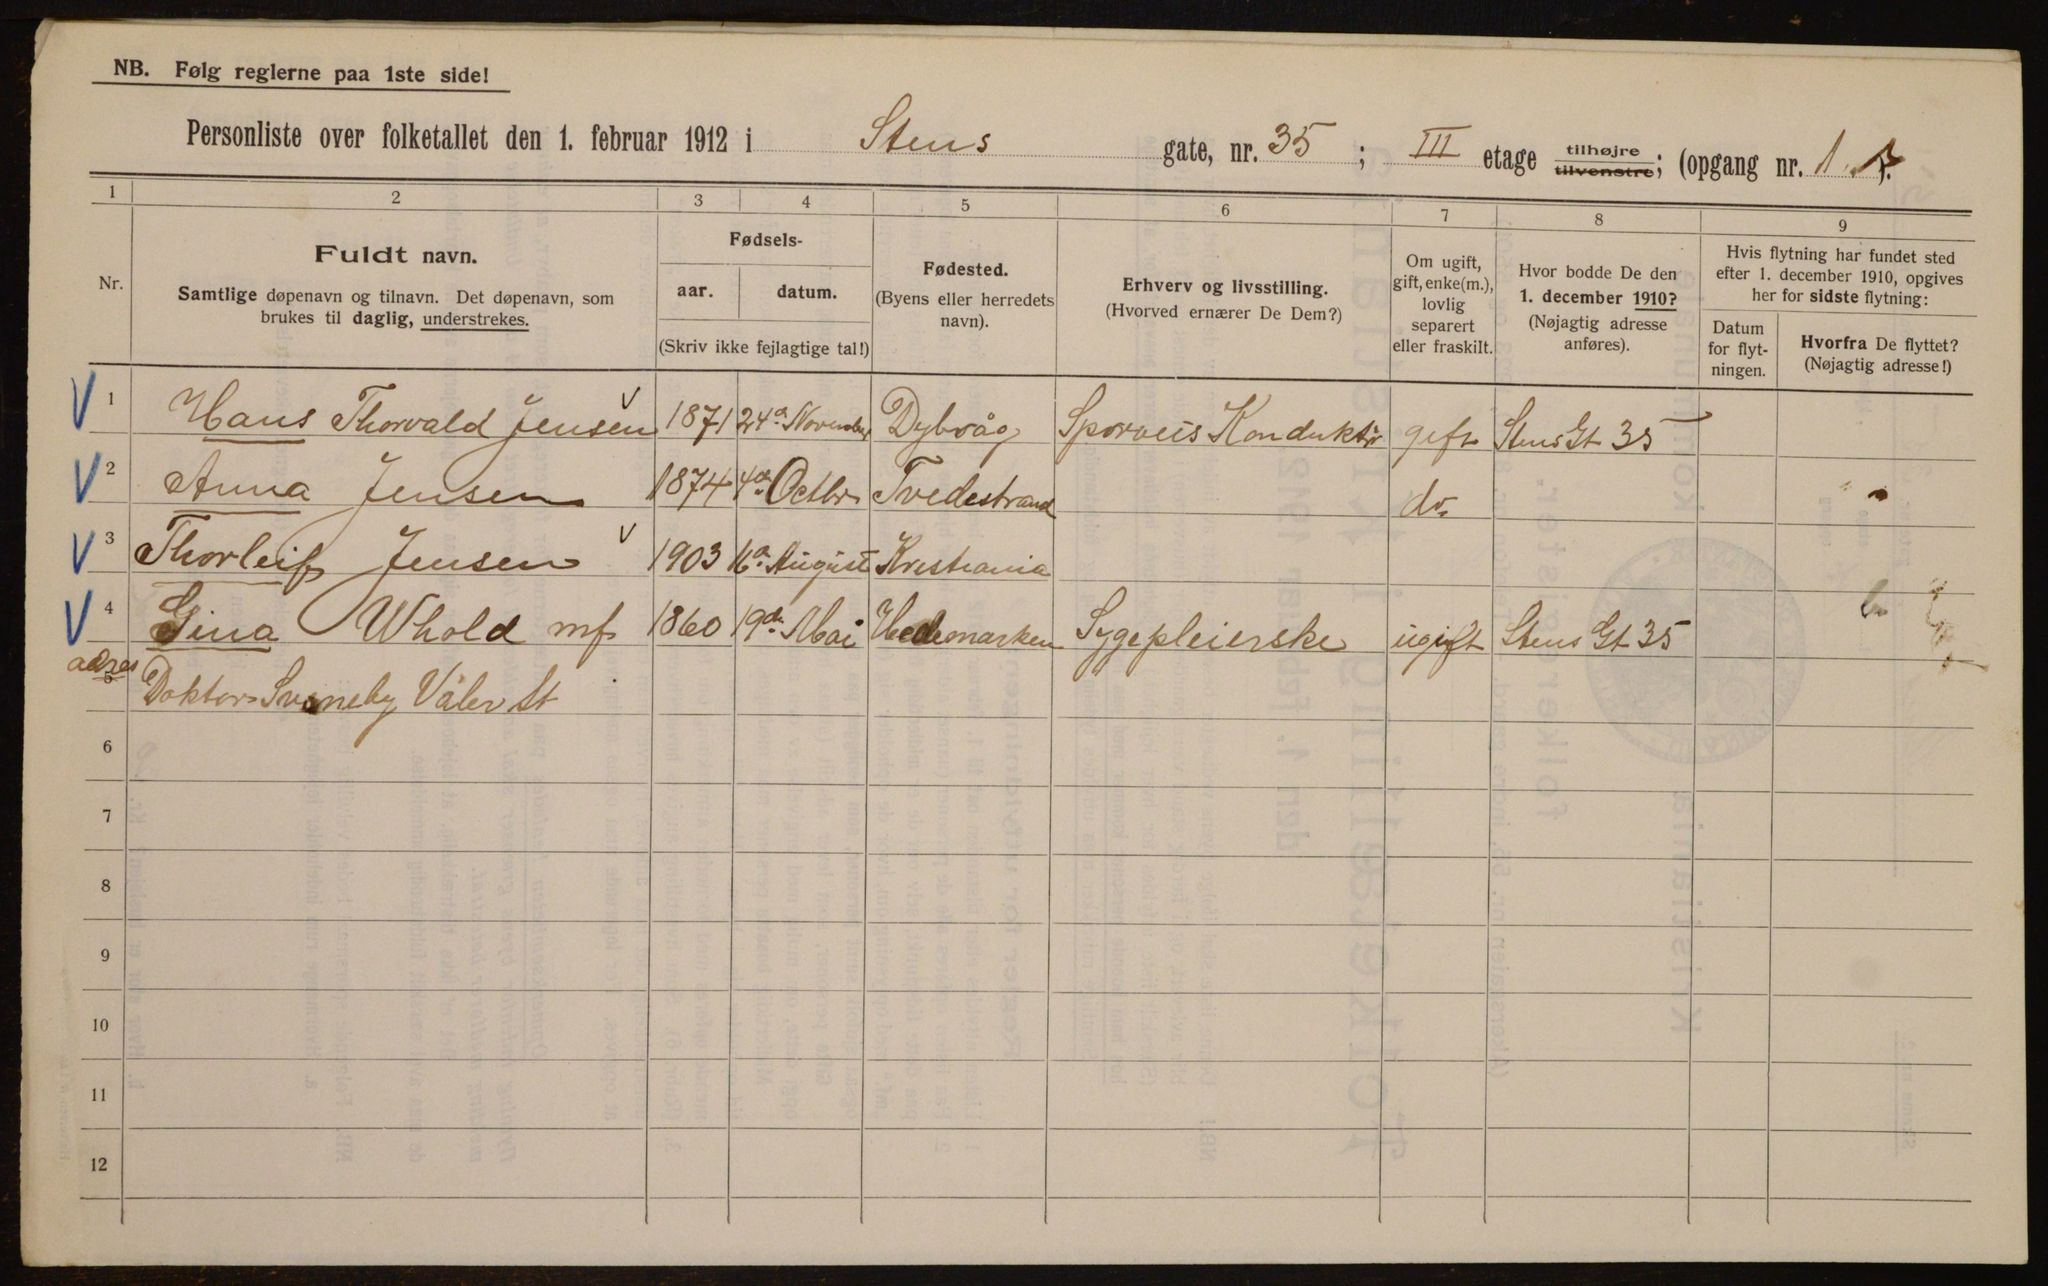 NB. Følg reglerne paa 1ste side!
Personliste over folketallet den 1. februar 1912 i Stens gate, nr. 35 ; III etage tilhøjre tilvenstre; (opgang nr. 1 ).
1 2 3 4 5 6 7 8 9
Nr.
Fuldt navn.
Samtlige døpenavn og tilnavn. Det døpenavn, som
brukes til daglig, understrekes.
Fødsels-
aar. datum.
(Skriv ikke fejlagtige tal!)
Fødested.
(Byens eller herredets
navn).
Erhverv og livsstilling.
(Hvorved ernærer De Dem?)
Om ugift,
gift, enke(m.),
lovlig
separert
eller fraskilt.
Hvor bodde De den
1. december 1910?
(Nøjagtig adresse
anføres).
Hvis flytning har fundet sted
efter 1. december 1910, opgives
her for sidste flytning:
Datum
for flyt-
ningen.
Hvorfra De flyttet?
(Nøjagtig adresse!)
1 Hans Thorvald Jensen 1871 24de November Dybvåg Sporveis Konduktør gift Stens Gt 35
2 Anna Jensen 1874 4de Octbr Tvedestrand do.
3 Thorleif Jensen 1903 August Kristiania
4 Gina Whold mf 1860 19de Mai Hedemarken Sygepleierske ugift Stens Gt 35
adres
5 Doktor Sveneby Våler St
6
7
8
9
10
11
12